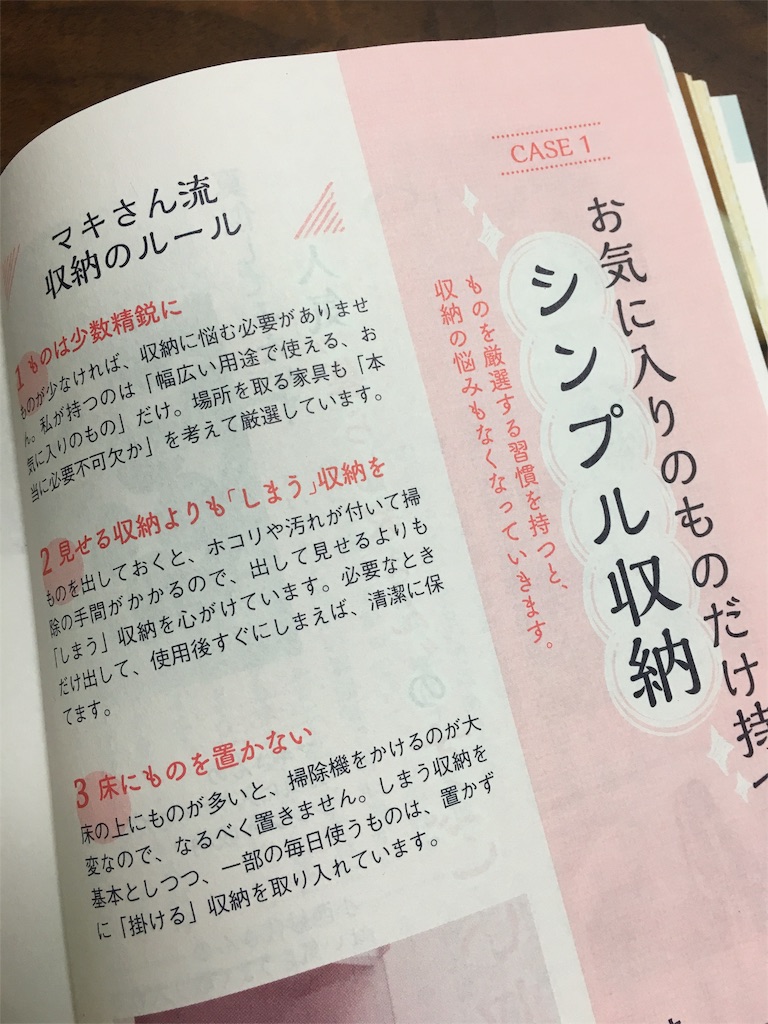 CASE 1
お気に入りのものだけ持つ
シンプル収納
ものを厳選する習慣を持つと、
収納の悩みもなくなっていきます。
マキさん流
収納のルール
1 ものは少数精鋭に
ものが少なければ、収納に悩む必要がありませ
ん。私が持つのは「幅広い用途で使える、お
気に入りのもの」だけ。場所を取る家具も「本
当に必要不可欠か」を考えて厳選しています。
2 見せる収納よりも「しまう」収納を
ものを出しておくと、ホコリや汚れが付いて掃
除の手間がかかるので、出して見せるよりも
「しまう」収納を心がけています。必要なとき
だけ出して、使用後すぐにしまえば、清潔に保
てます。
3 床にものを置かない
床の上にものが多いと、掃除機をかけるのが大
変なので、なるべく置きません。しまう収納を
基本としつつ、一部の毎日使うものは、置かず
に「掛ける」収納を取り入れています。